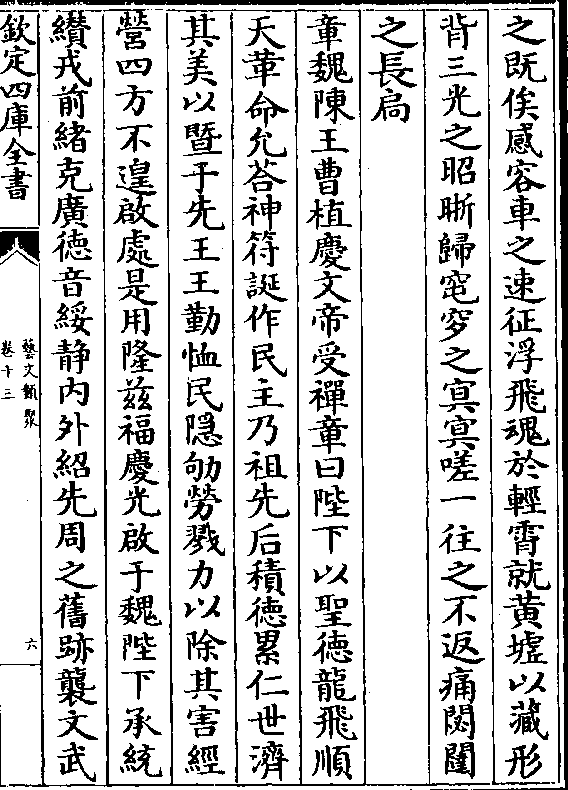 之既俟感容車之速征浮飛魂於輕霄就黄墟以藏形
背三光之昭晣歸窀穸之冥冥嗟一往之不返痛閟闥
之長扄
章魏陳王曹植慶文帝受禪章曰陛下以聖徳龍飛順
天革命允荅神符誕作民主乃祖先后積徳累仁世濟
其美以暨于先王王勤恤民隠劬勞戮力以除其害經
營四方不遑啟處是用隆兹福慶光啟于魏陛下承統
纉戎前緒克廣徳音綏静内外紹先周之舊跡襲文武
欽定四庫全書
藝文類聚
卷十三
六